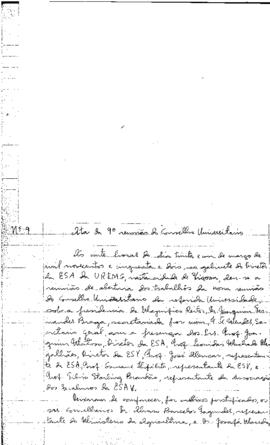 Nº 9 Ata da 9ª reunião do Conselho Universitário
Às vinte horas do dia trinta e um de março de
mil novecentos e cinquenta e dois, no gabinete do Diretor
da ESA da UREMG, nesta cidade de Viçosa, deu-se a
reunião de abertura dos trabalhos da nona reunião
do Conselho Universitário da referida Universidade,
sob a presidência do Magnífico Reitor, Dr. Joaquim Fer-
nandes Braga, secretariada por mim, Se-
cretário Geral, com a presença dos Srs. Prof. Joa-
quim Diretor da ESA, Prof. Geraldo Machado Ma-
galhães, Diretor da ESV, Prof. José Alencar, representan-
te da ESA, Prof. representante da ESV, e
Prof. Sílvio Starling Brandão, representante da Associação
dos Ex-alunos da ESAV.
Deixaram de comparecer, por motivos justificados, os
srs. conselheiros Dr. Álvaro Barcelos Fagundes, represen-
tante do Ministério da Agricultura, e Dr. Joseph